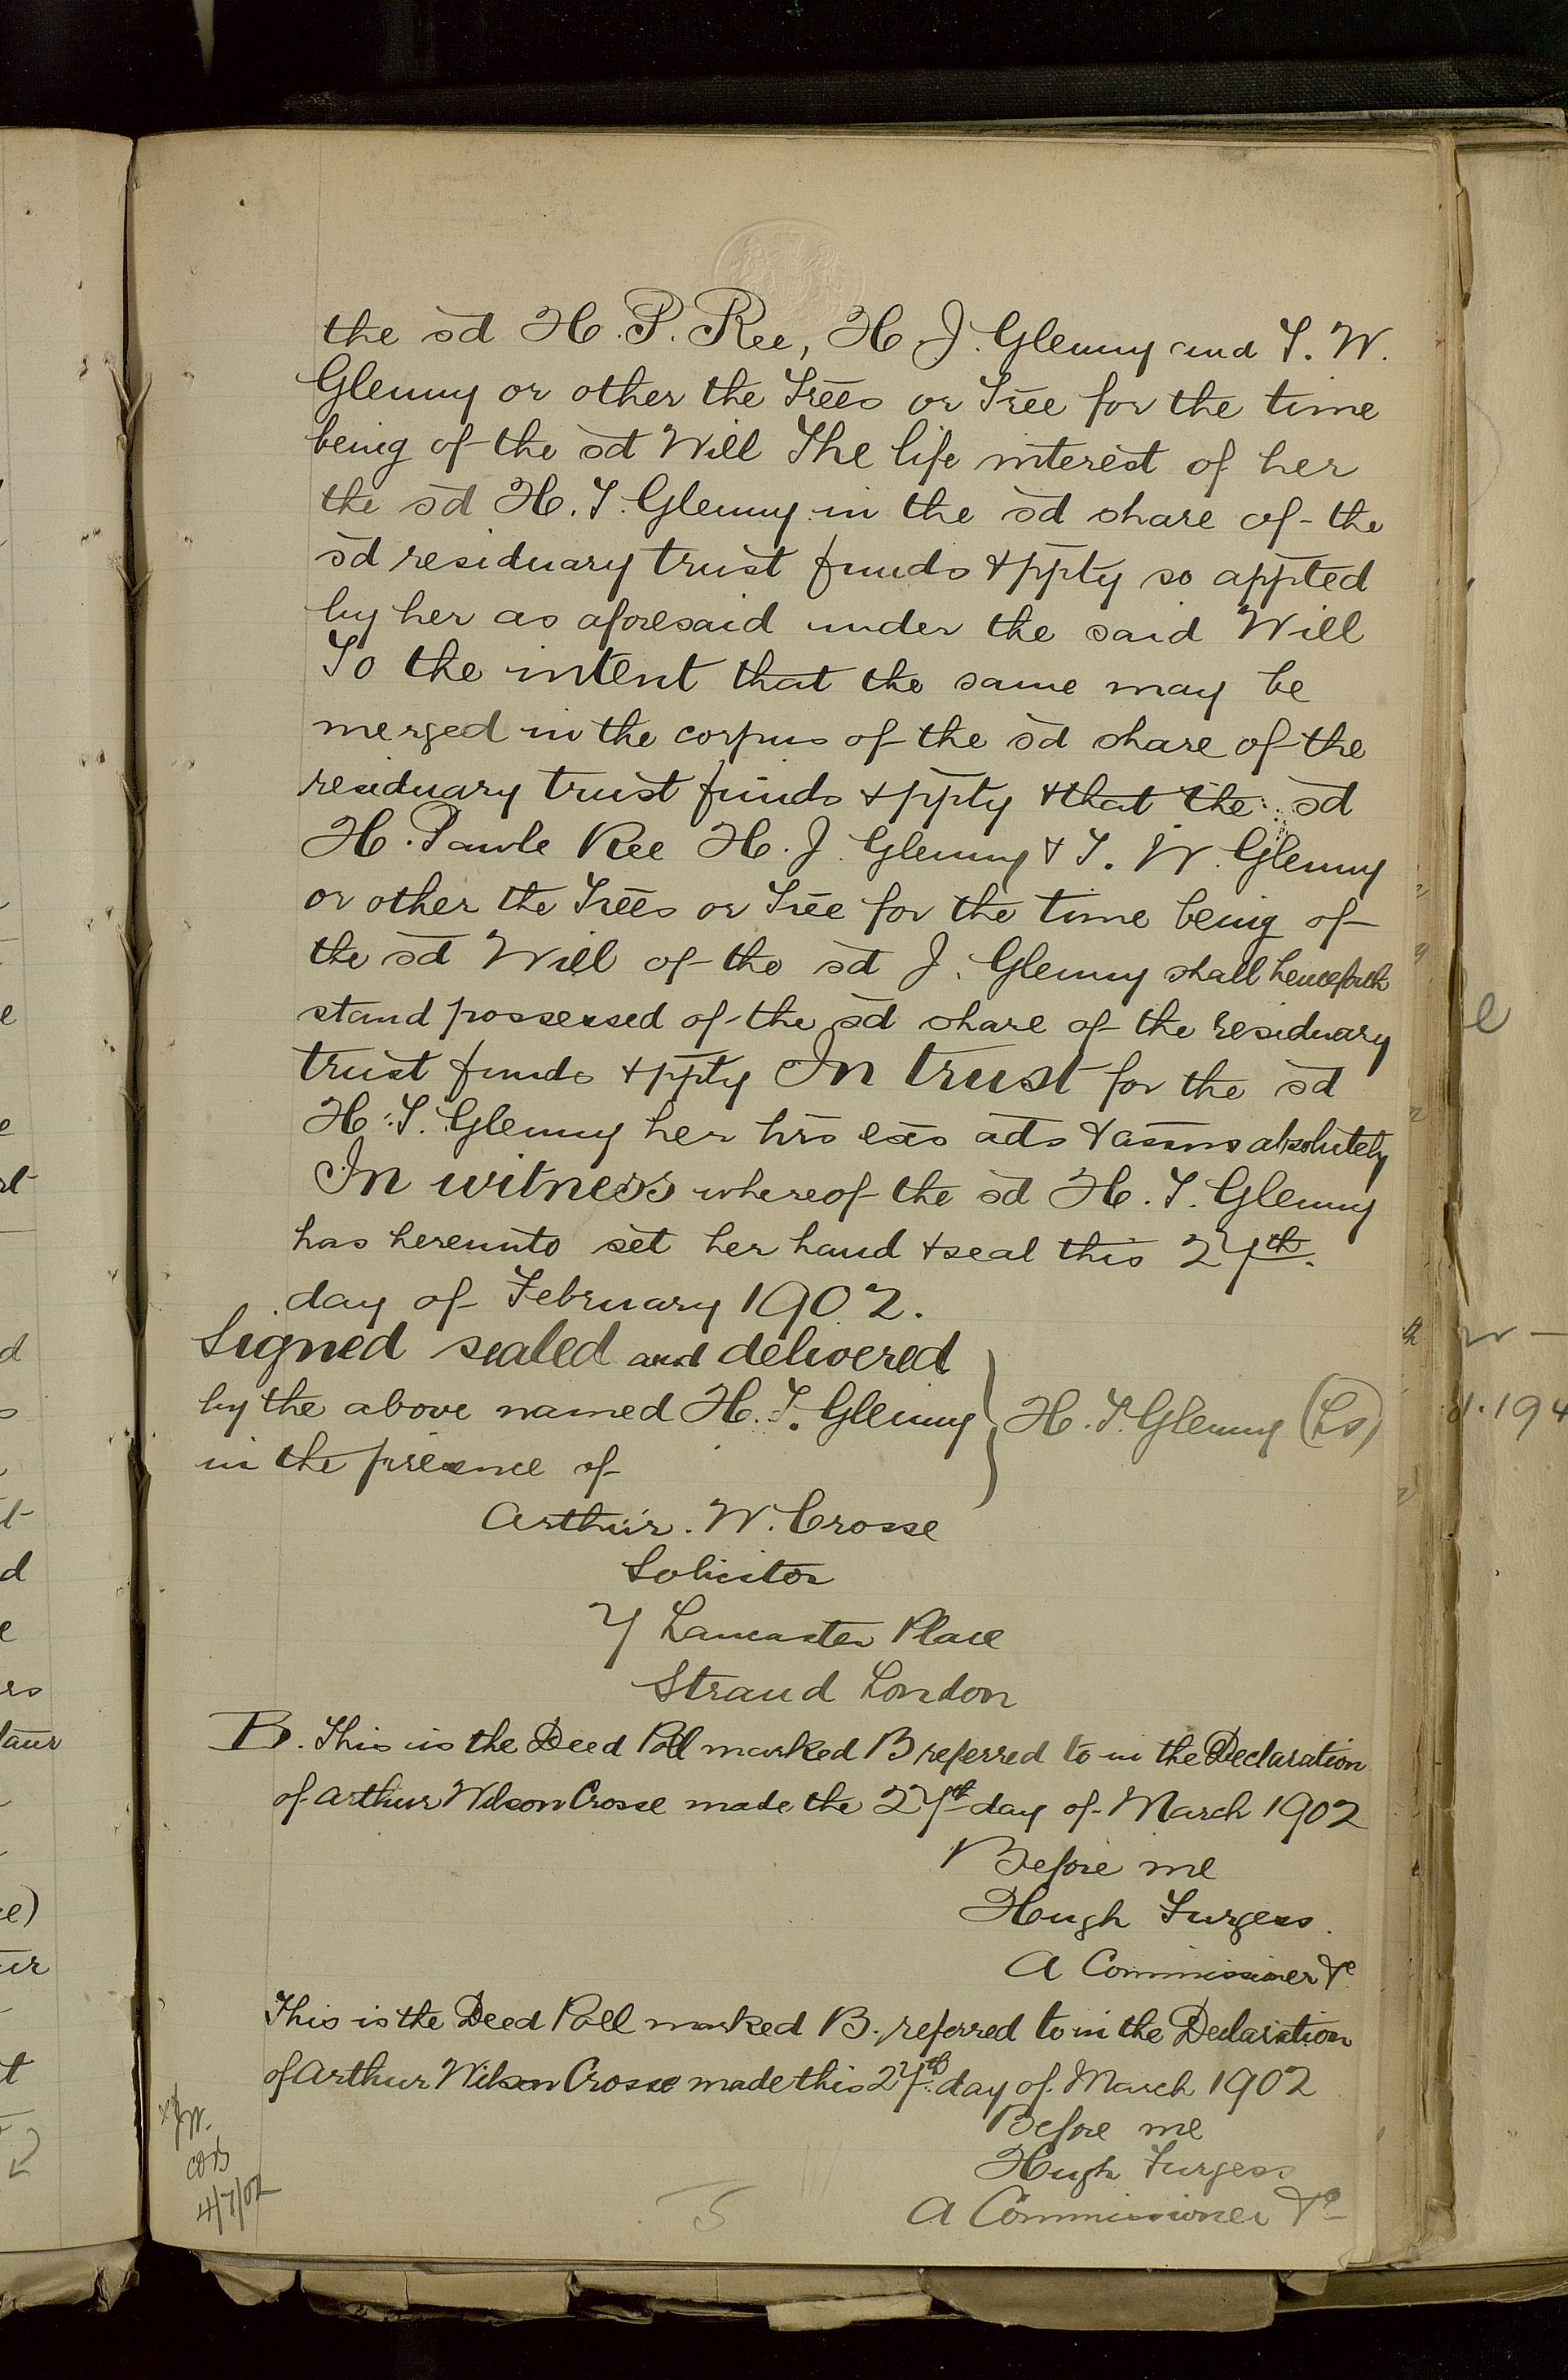 the sd H. P. Ree, H. J. Glenny and T. W.
Glenny or other the Trees or Tree for the time
being of the sd Will The life interest of her
the sd H. T. Glenny in the sd share of the
sd residuary trust funds & ppty so appted
by her as aforesaid under the said Will
To the intent that the same may be
merged in the corpus of the sd share of the
residuary trust funds & ppty & that the sd
H. Pawle Ree H. J. Glenny & T. W. Glenny
or other the Trees or Tree for the time being of
the sd Will of the sd J. Glenny shall henceforth
stand possessed of the sd share of the residuary
trust funds & ppty In trust for the sd
H. T. Glenny her hrs exs ads & assns absolutely
In witness whereof the sd H. T. Glenny
has hereunto set her hand & seal this 27th
day of February 1902.
Signed sealed and delivered
by the above named H. T. Glenny } H. T. Glenny (Ls)
in the presence of
Arthur. W. Crosse
Solicitor
7 Lancaster Place
Strand London
B. This is the Deed Poll marked B referred to in the Declaration
of Arthur Wilson Crosse made the 27th day of March 1902
Before me
Hugh Furgess.
A Commissioner &c
This is the Deed Poll marked B. referred to in the Declaration
of Arthur Wilson Crosse made this 27th day of March 1902
Before me
Hugh Furgess
A Commissioner &c
4/7/02